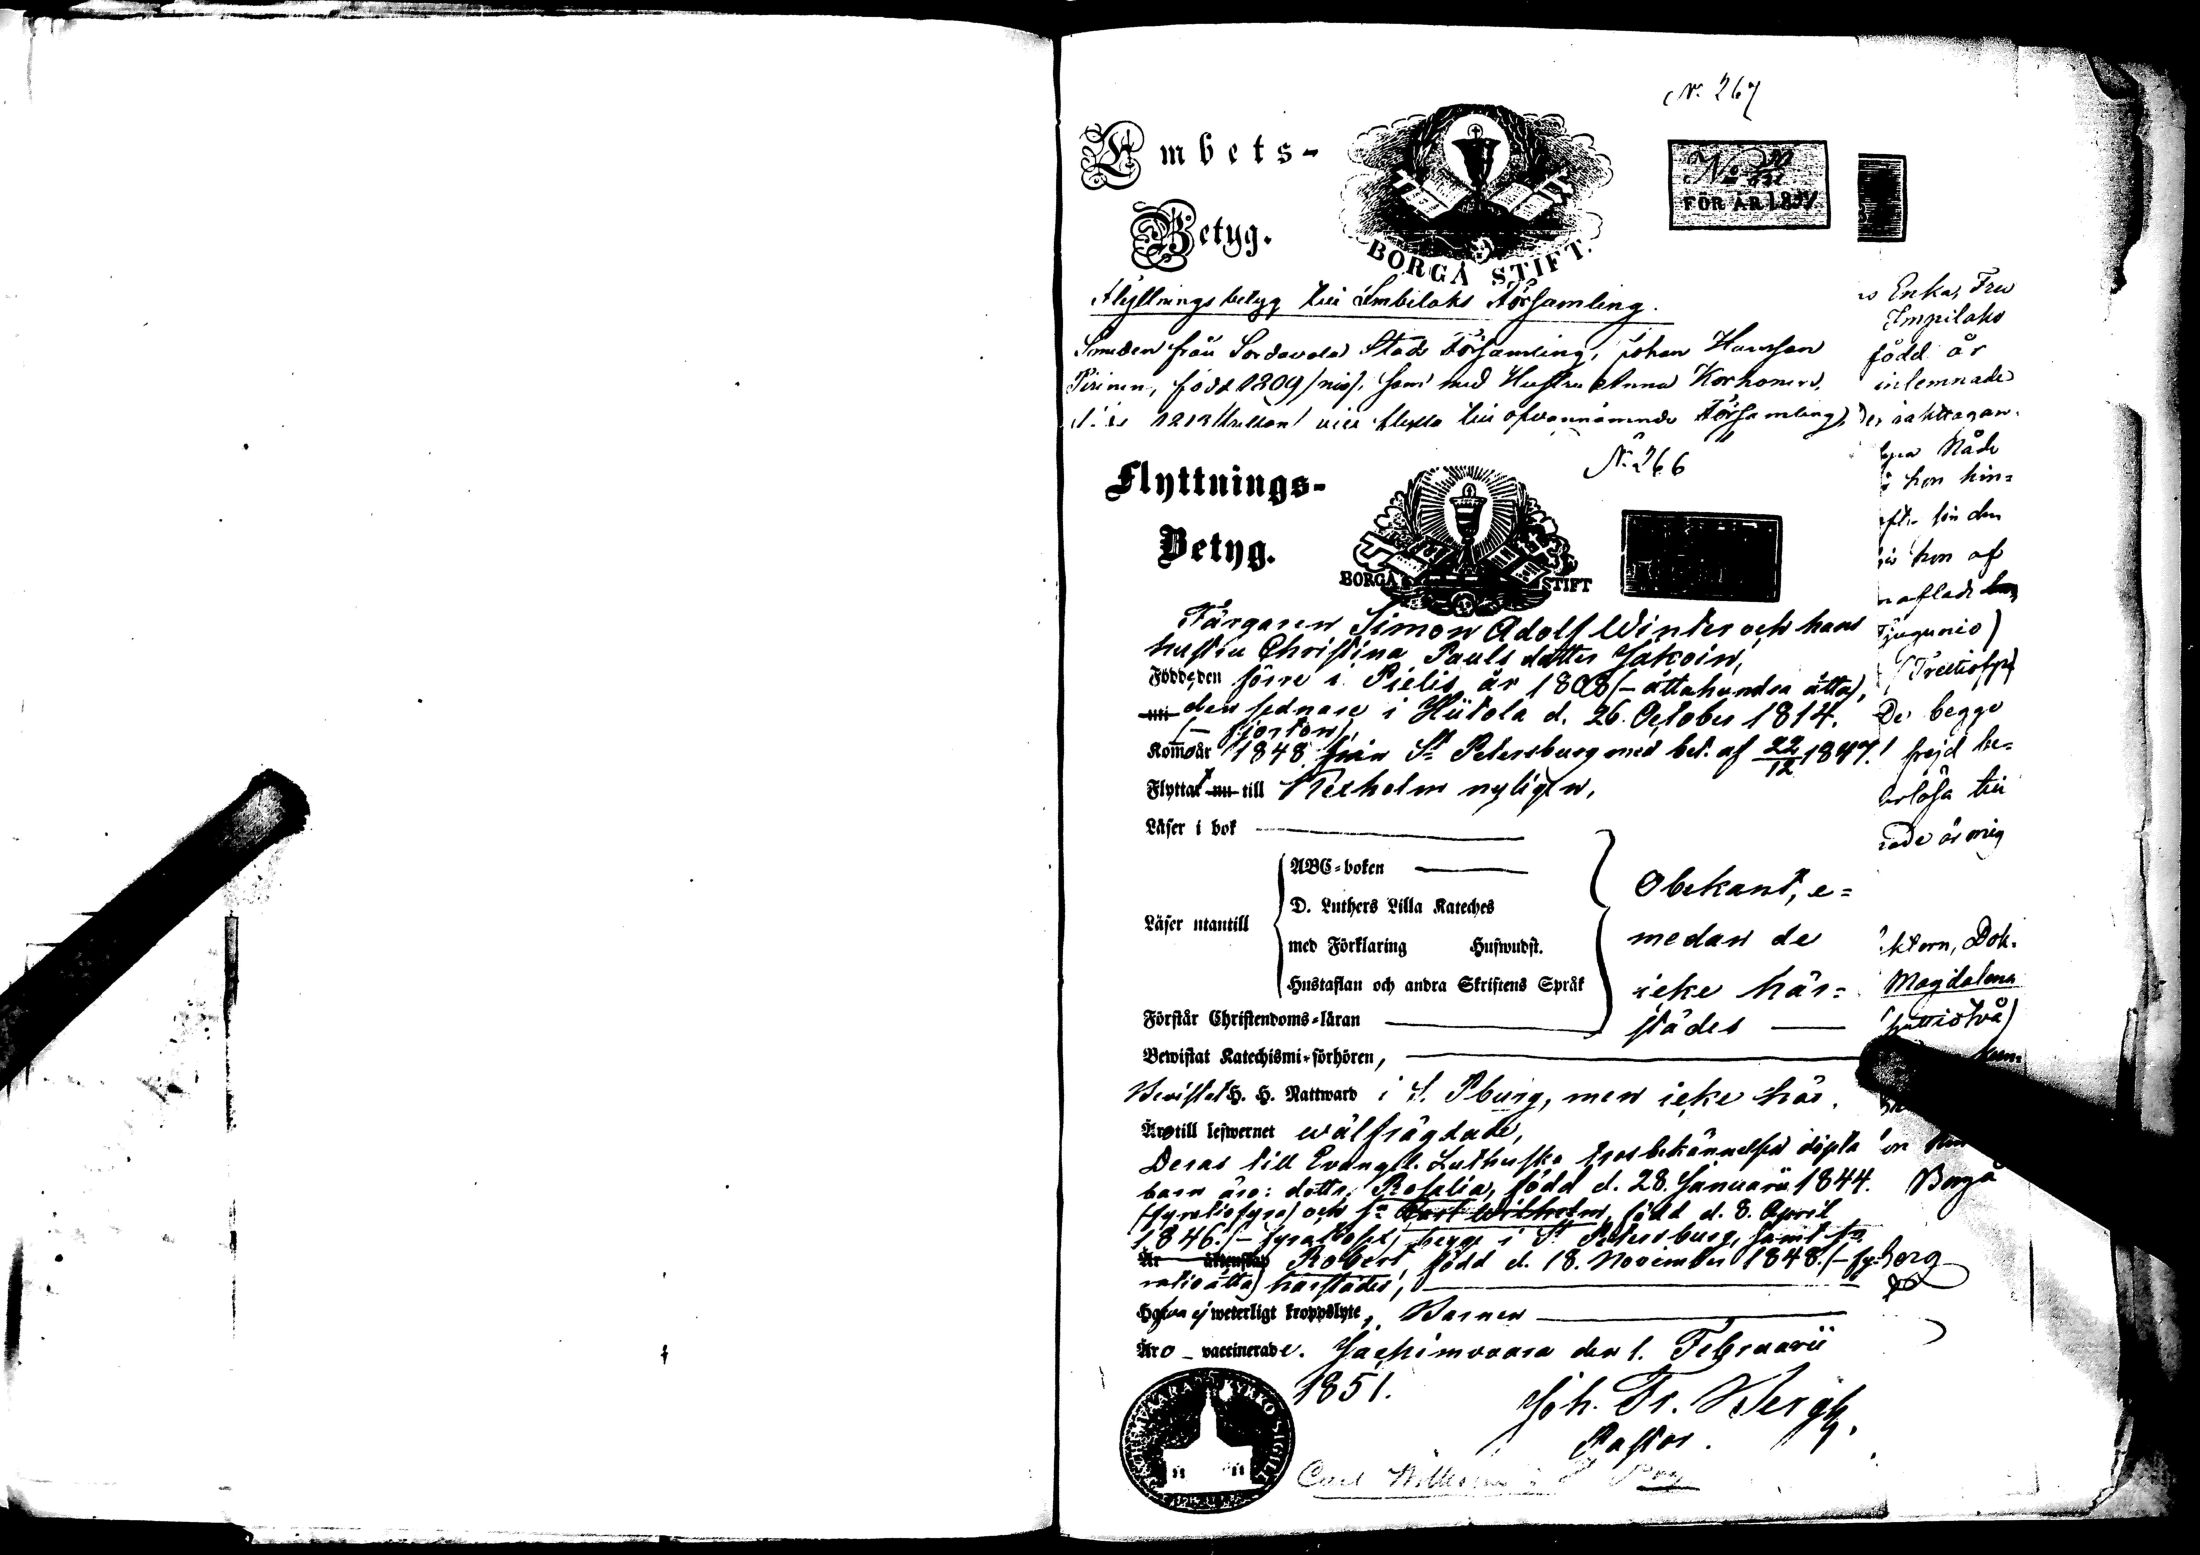 N. 267
Embets-
Betyg.
BORGÅ STIFT.
FÖR ÅR 1851
Flyttningsbetyg till Imbilaks Församling.
Smeden från Sordavala Stads Församling, Johan Hansson
Pirinen, född 1809 /nio/, som med Hustru Anna Korhonen,
1813 /tretton/ vill flytta till ofvannämnde Församling,
N. 266
Flyttnings-
Betyg.
BORGÅ STIFT
Färgaren Simon Adolf Winter och hans
hustru Christina Pauls dotter Jakoin,
Födde, den förre i Pielis år 1808 (- åttahundra åtta),
den sednare i Hiitola d. 26. October 1814.
(- fjorton),
Kommo år 1848 från St Petersburg med bet. af 22/12 1847.
Flyttat nu till Kexholm nyligen,
Läser i bok
ABC-boken
D. Luthers Lilla Kateches
Läser utantill
med Förklaring Huswudst.
Hustaflan och andra Skriftens Språk
Obekant, e=
medan de
icke här=
städes
Förstår Christendoms-läran
Bewistat Katechismi-förhören,
Bevistat H. H. Nattward i S. Pburg, men icke här.
Äro till lefwernet wälfrägdade,
Deras till Evangel. Lutherska trosbekännelsen döpta
barn äro: dottr. Rosalia, født d. 28. Januarii 1844.
(fyratiofyra) och sn Carl Wilhelm, född d. 8. April
1846. (- fyratiosex) begge i St Petersburg, samt sn
Är äktenskap Robert, född d. 18. November 1848. (- fy-
ratioåtta) härstädes,
Hafva ej weterligt kroppslyte, Barnen
Äro vaccinerade. Jaakimvaara den 1. Februarii
1851.
Joh. Fr. Bergh.
Pastor.
KYRKO SIGILL
Carl Wilhelm
Enka, Fru
Impilaks
född år
inlemnade
iakttagan
Nåde
hon hin=
hon af
Tjugunio)
De begge
frejd be=
till
är mig
Dok.
Magdalena
Borgå